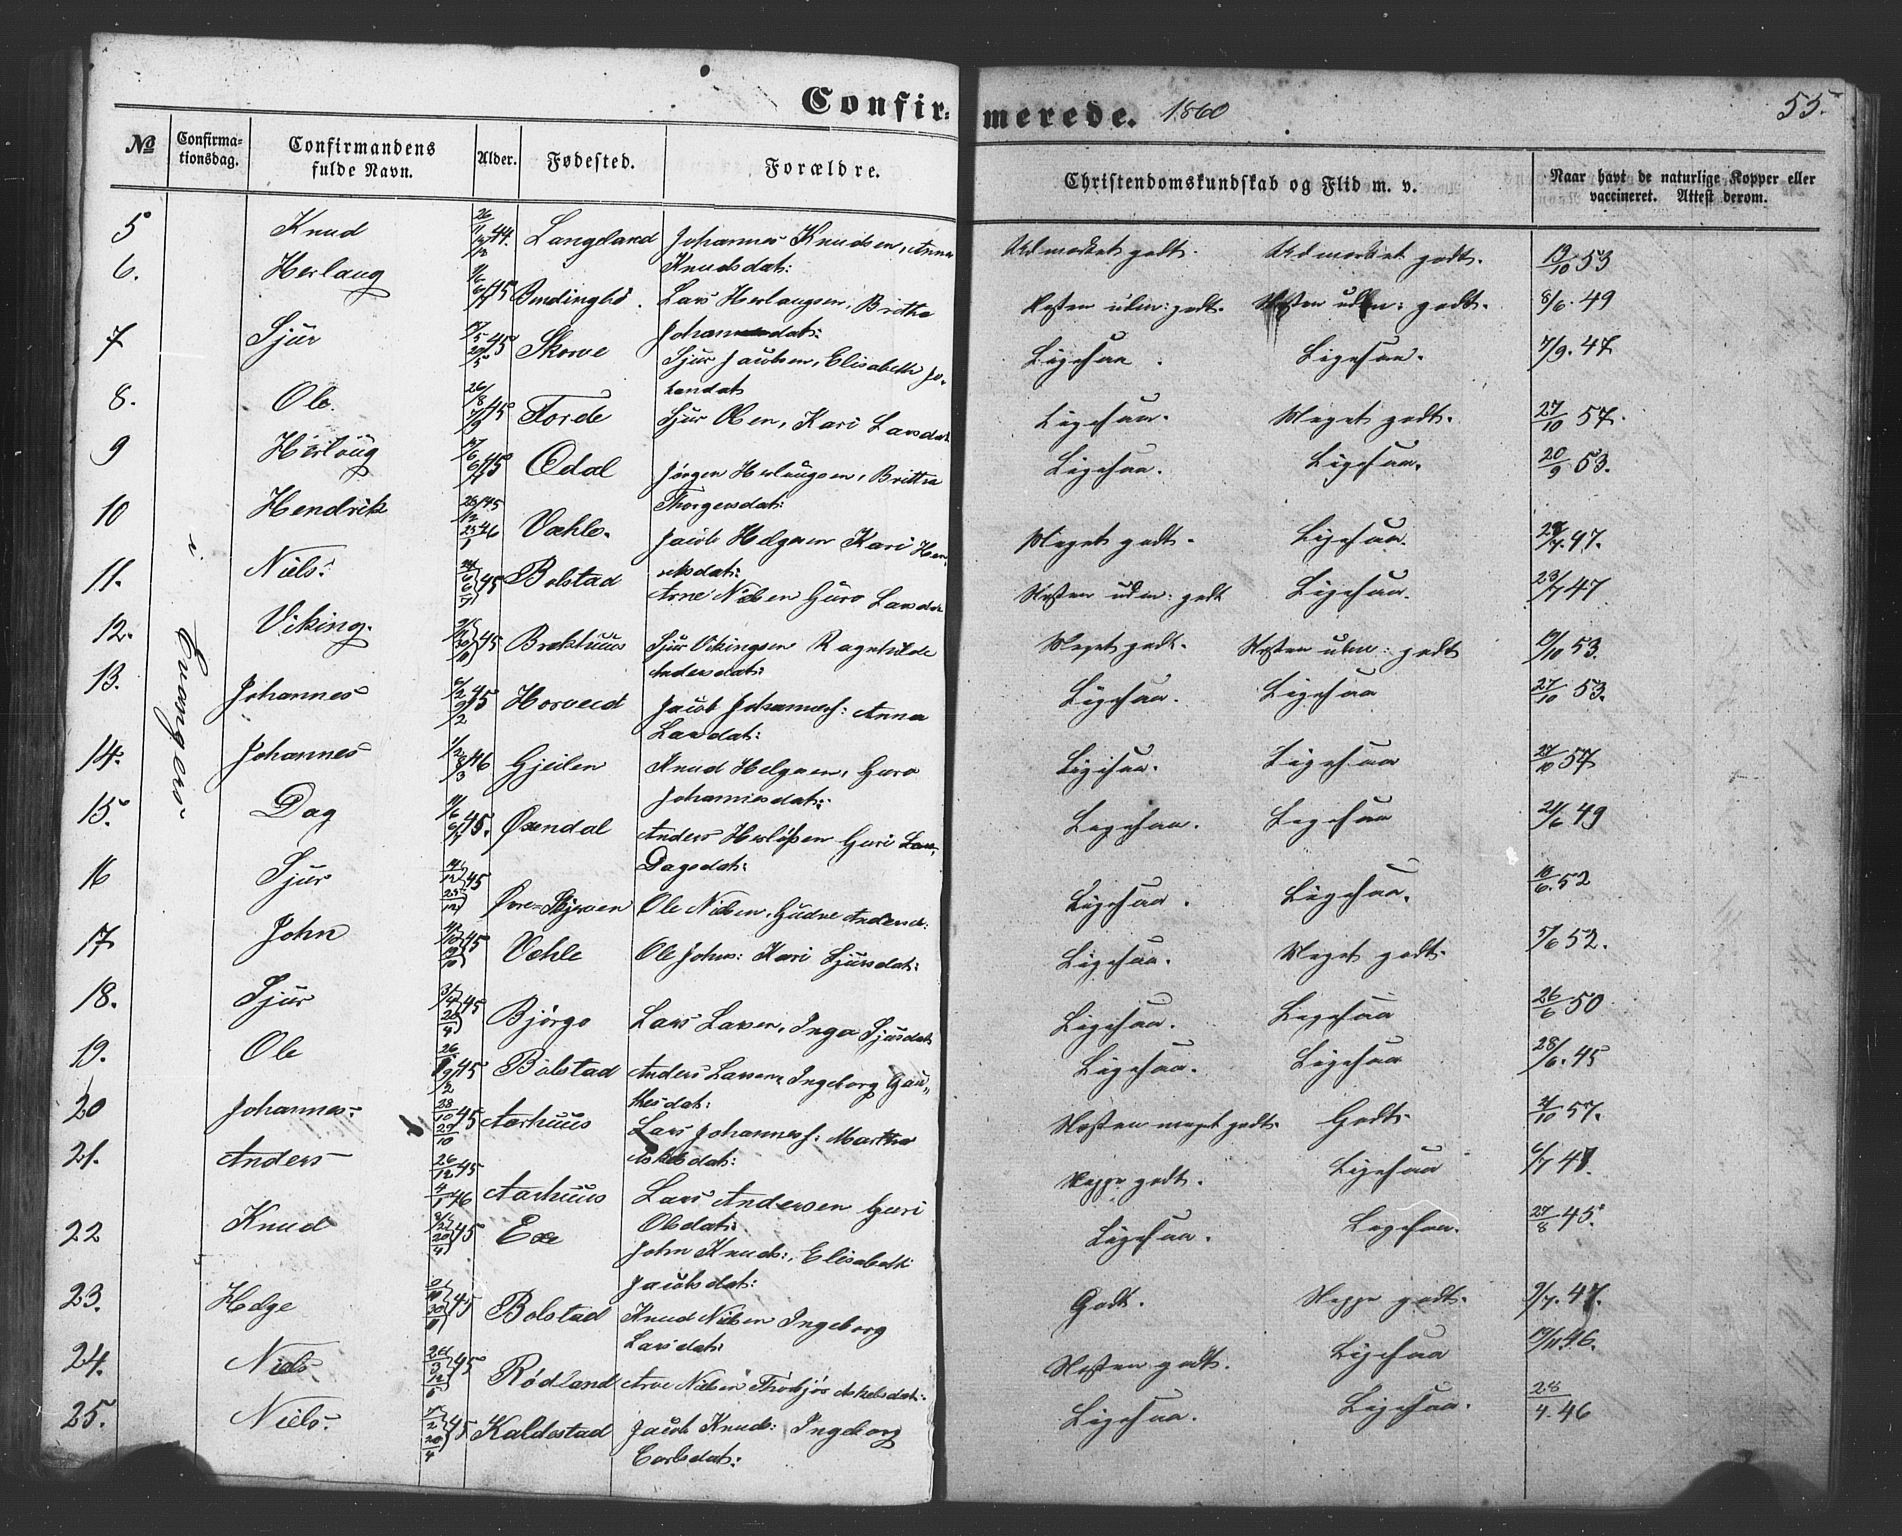 Confirmerede. 1860 55.
No Confirmationsdag. Confirmandens fulde Navn. Alder. Fødested. Forældre. Christendomskundskab og Flid m. v. Naar havt de naturlige Kopper eller vaccineret. Attest derom.
i Evanger
5 Knud 44. Langeland Johannes Knudsen, Anna Knudsdat: Udmærket godt. Udmærket godt. 19/10 53
6. Herlaug 45 Lars Herlaugsen, Britha Johannesdat: Næsten udm: godt. Næsten udm: godt. 8/6. 49
7 Sjur 45 Skorve Sjur Jacobsen, Elisabeth Ligesaa. Ligesaa. 7/9. 47
8. Ole. 45 Førde Sjur Olsen, Kari Larsdat Ligesaa. Meget godt. 27/10 57.
9 Herloug 45 Ødal Jørgen Herlaugsen, Brittha Thorgersdat: Ligesaa. Ligesaa. 20/9 53.
10 Hendrik 45 46 Væhle. Jacob Helgesen Kari Henriksdat: Meget godt. Ligesaa. 47.
11. Niels. 45 Bolstad Arne Nielsen Guro Larsdat Næsten udm: godt Ligesaa. 23/7 47
12. Viking. 45 Brækhuus Sjur Vikingsen Ragnhilde Andersdat: Meget godt. Næsten udm: godt 19/10 53.
13. Johannes 45 Horveid Jacob Johanness: Anna Larsdat: Ligesaa. Ligesaa 27/10 53.
14. Johannes 46 Gjeilen Knud Helgesen, Guro Johannesdat: Ligesaa. Ligesaa 27/10 57
15. Dag 45. Øxendal Anders Guri Dagsdat: Ligesaa. Ligesaa 21/6 49
16 Sjur 45 Ole Nielsen, Gudve Andersd: Ligesaa. Ligesaa. 52
17 John 45 Væhle Ole Johns: Kari Sjursdat: Ligesaa. Meget godt. 5/6 52.
18. Sjur 45 Bjørgo Lars Larsen, Inga Sjursdat Ligesaa. Ligesaa 26/6 50
19. Ole 45 Bolstad Anders Larsen, Ingeborg Gauthesdat: Ligesaa. Ligesaa 28/6. 45
20 Johannes 28/10 45 29/10 Aarhuus Lars Johanness: Martha Askelsdat: Næsten meget godt. Godt 57.
21. Anders 26/12 45 4/1 46 Aarhuus Lars Andersen Guri Olsdat: Neppe godt. Ligesaa 6/7 47.
22 Knud 45 Exe John Knuds:, Elisabeth Jacobsdat: Ligesaa. Ligesaa. 27/8 45.
23. Helge 45 Bolstad Knud Nielsen Ingeborg Larsdat: Godt. Neppe godt. 9/7. 47.
24. Niels 45 Rødland Arne Nielsen Thorbjør Askelsdat: Næsten godt. Ligesaa 19/11 46.
25. Niels. 45 Kaldestad Jacob Knuds: Ingeborg Carlsdat: Ligesaa. Ligesaa. 28/4. 46